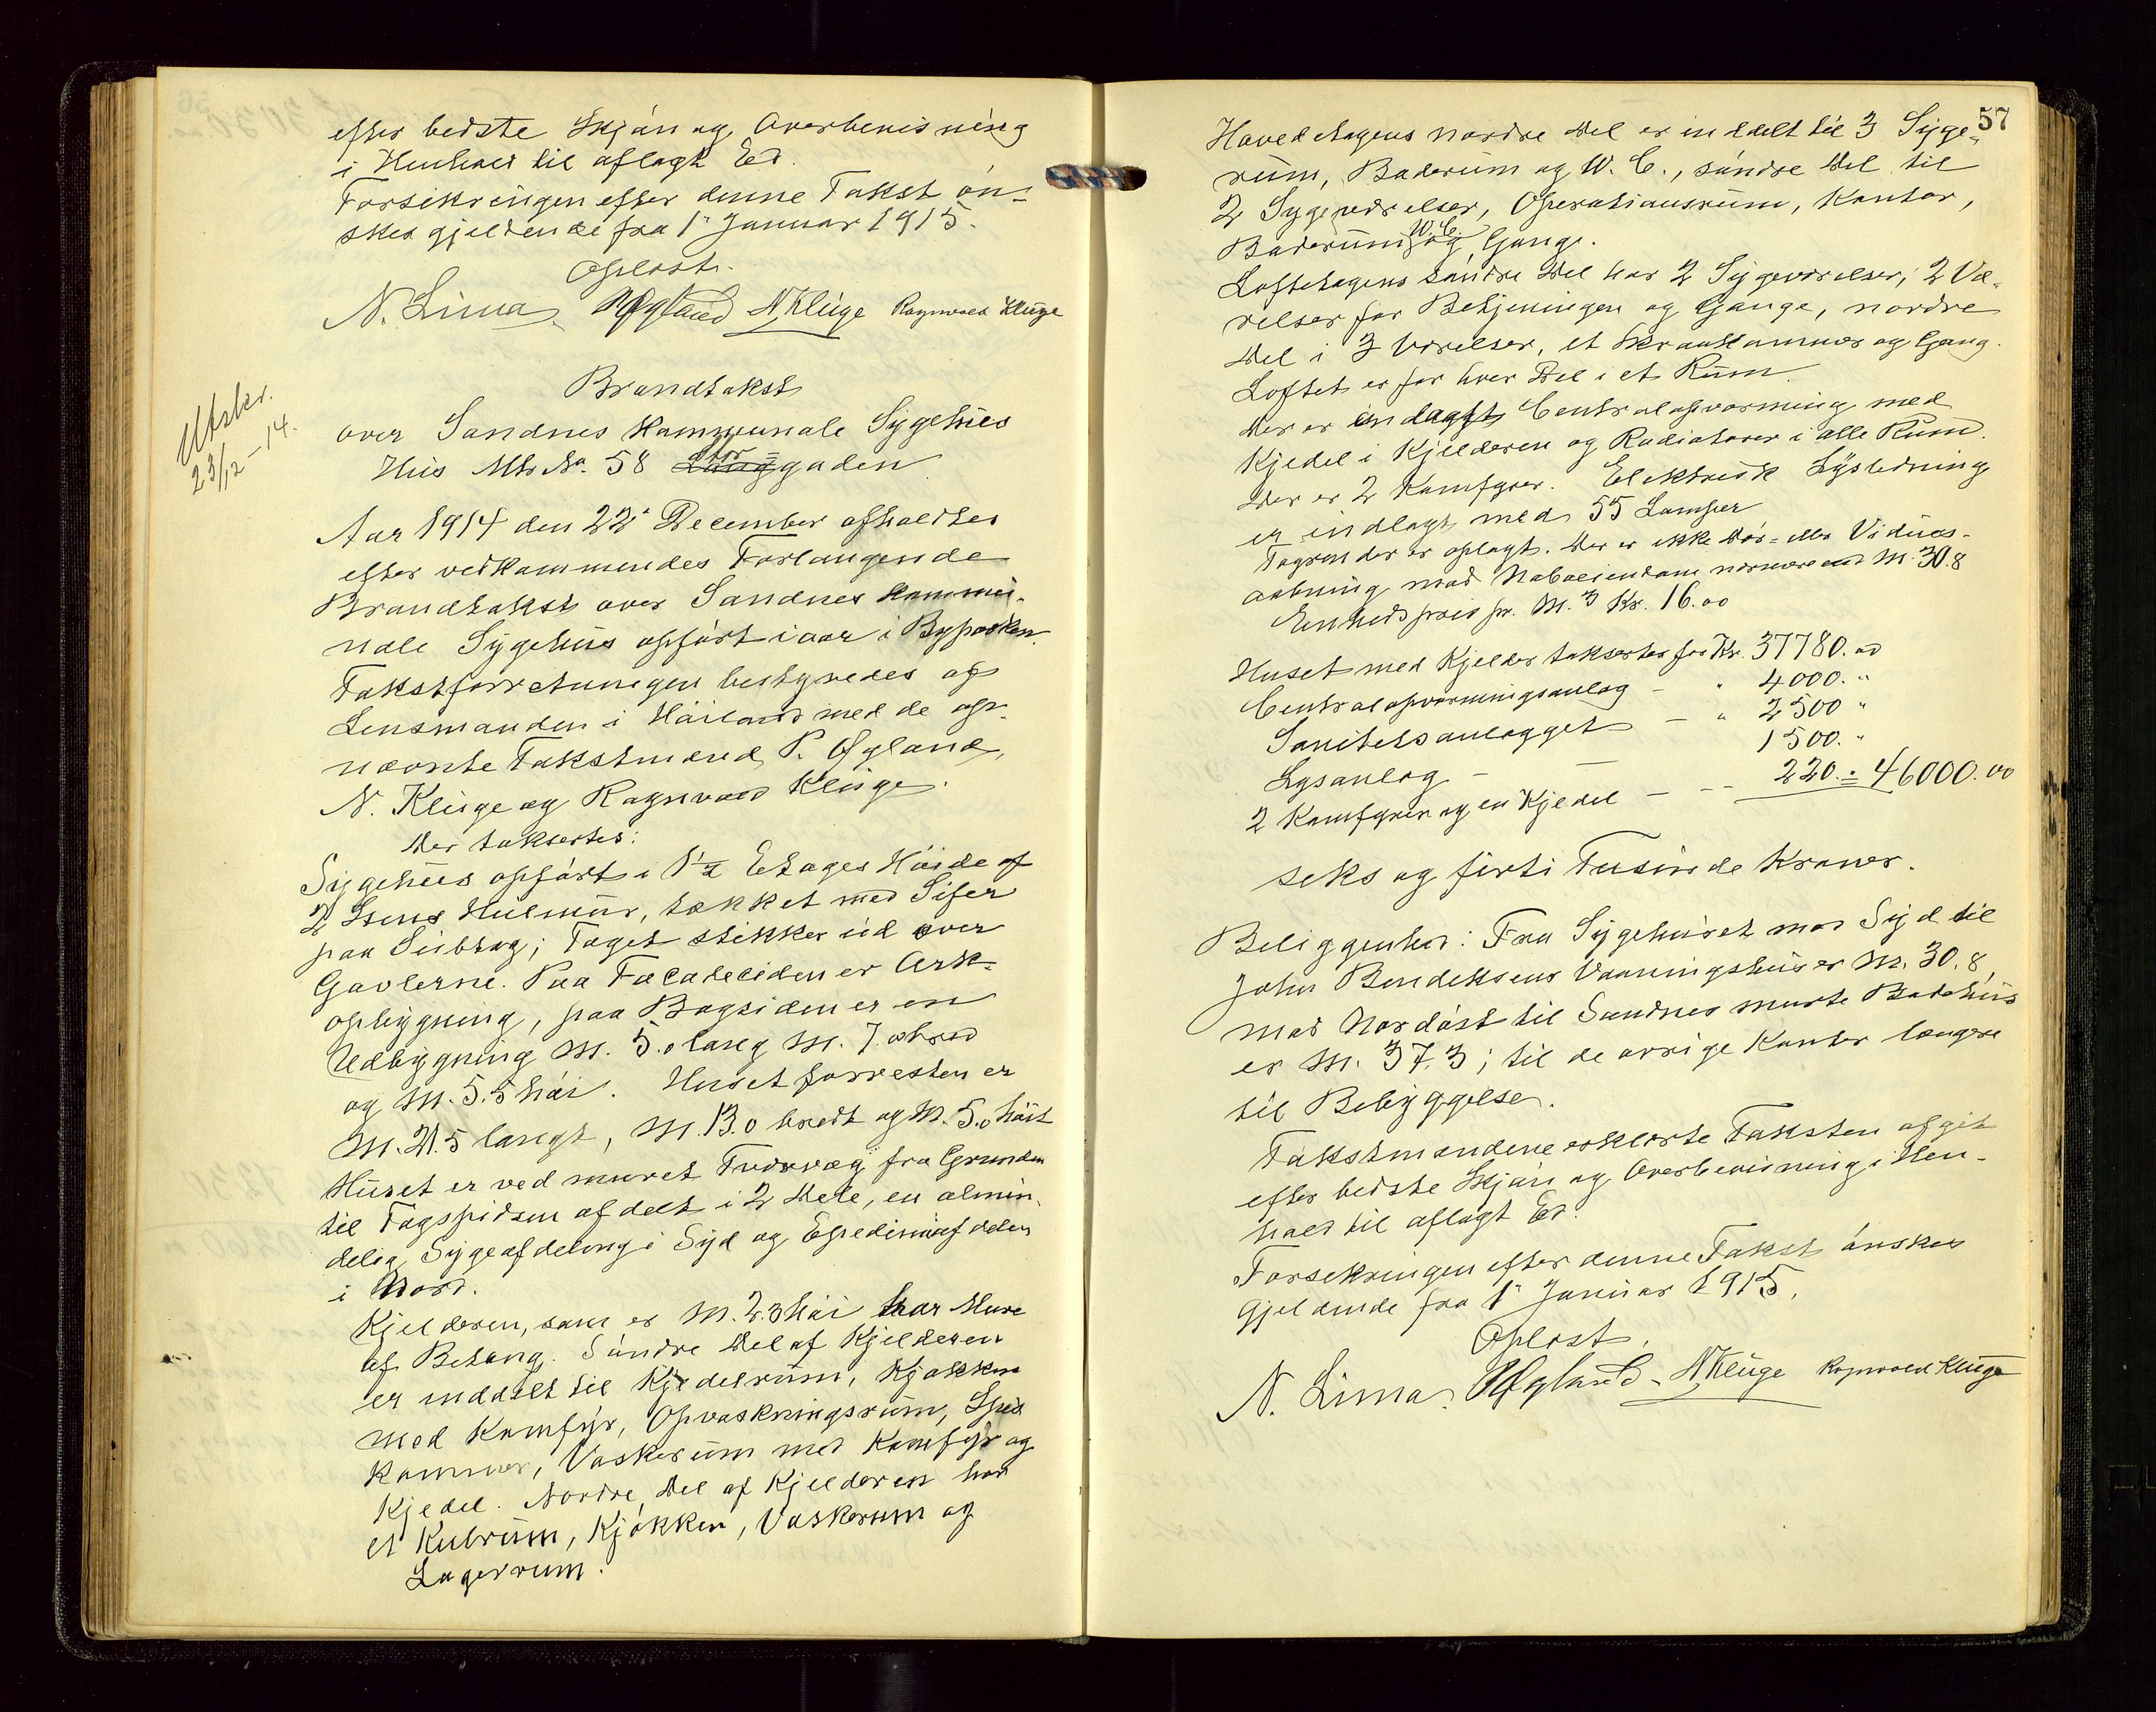 efter bedste Skjön og Overbevisning
i Henhold til aflagt Ed.
Forsikringen efter denne Takst ön-
skes gjeldende fra 1' Januar 1915.
Oplæst.
N. Lima. Øgland N. Kluge Ragnvald Kluge
Utskr.
23/12-14.
Brandtakst
over Sandnes Kommunale Sygehus
Hus Mtr No. 58 Langgaden
Stor
Aar 1914 den 22' December afholdtes
efter vedkommendes Forlangende
Brandtakst over Sandnes Kommu-
nale Sygehus opfört iaar i Byparken.
Takstforretningen bestyredes af
Lensmanden i Höiland med de op-
nævnte Takstmænd P. Øgland,
N. Kluge og Ragnvald Kluge.
Der takseres:
Sygehus opfört i 1½ Etages Höide af
2 Stens Hulmur, tækket med Skifer
paa Subtag; Taget stikker ud over
Gavlerne. Paa Facadesiden er Ark-
opbygning, paa Bagsiden er en
Udbygning M. 5.0 lang M. 7.0 bred
og M. 5.5 höi. Huset forresten er
M. 21.5 langt, M. 13.0 bredt og M. 5.0 höit
Huset er ved muret Tverværg fra Grunden
til Tagspidsen afdelt i 2 Dele, en almin-
delig Sygeafdeling i Syd og Epedimiafdelin
i Nord.
Kjelderen, som er M. 2.3 höi har Mure
af Betong. Söndre Del af Kjelderen
er inddelt til Kjedelrum, Kjökken
med Komfyr, Opvaskningsrum, Spis
Kammer, Vaskerum med Komfyr og
Kjedel. Nordre Del af Kjelderen har
et Kulrum, Kjökken, Vaskerum og
Lagerrum.
57
Hovedetagens nordre Del er inddelt til 3 Syge-
rum, Baderum og W. C., söndre Del til
2 Sygeværelser, Operationsrum, Kontor,
W. C.
Baderum og Gange.
Loftetagens söndre Del har 2 Sygeværelser, 2 Væ-
relser for Betjeningen og Gange, nordre
Del i 3 Værelser, et Skraakammer og Gang.
Loftet er for hver Del i et Rum.
Der er indlagt Centralopvarming med
Kjedel i Kjelderen og Radiatorer i alle Rum.
Der er 2 Komfyrer. Elektrisk Lysledning
er indlagt med 55 Lamper
Tagrender er oplagt. Der er ikke Dör- eller Vidues-
aabning mod Naboeiendom nærmere end M. 30.8
Enhedspris pr. M.3 Kr. 16.00
Huset med Kjelder takseres for Kr. 37780.00
Centralopvarmningsanlæg - " 4000. "
Sanitetsanlægget - " 2500 "
Lysanlæg - - 1500. "
2 Komfyrer og en Kjedel - - - 220. = 46000.00
seks og firti Tusinde Kroner.
Beliggenhed: Fra Sygehuset mod Syd til
John Bendiksens Vaaningshus er M. 30.8,
mod Nordöst til Sandnes murte Badehus
er M. 37.3; til de övrige Kanter længere
til Bebyggelse.
Takstmændene erklærte Taksten afgit
efter bedste Skjön og Overbevisning i Hen-
hold til aflagt Ed.
Forsekringen efter denne Takst önskes
gjeldende fra 1' Januar 1915.
Oplæst.
N. Lima. Øgland. N. Kluge Ragnvald Kluge